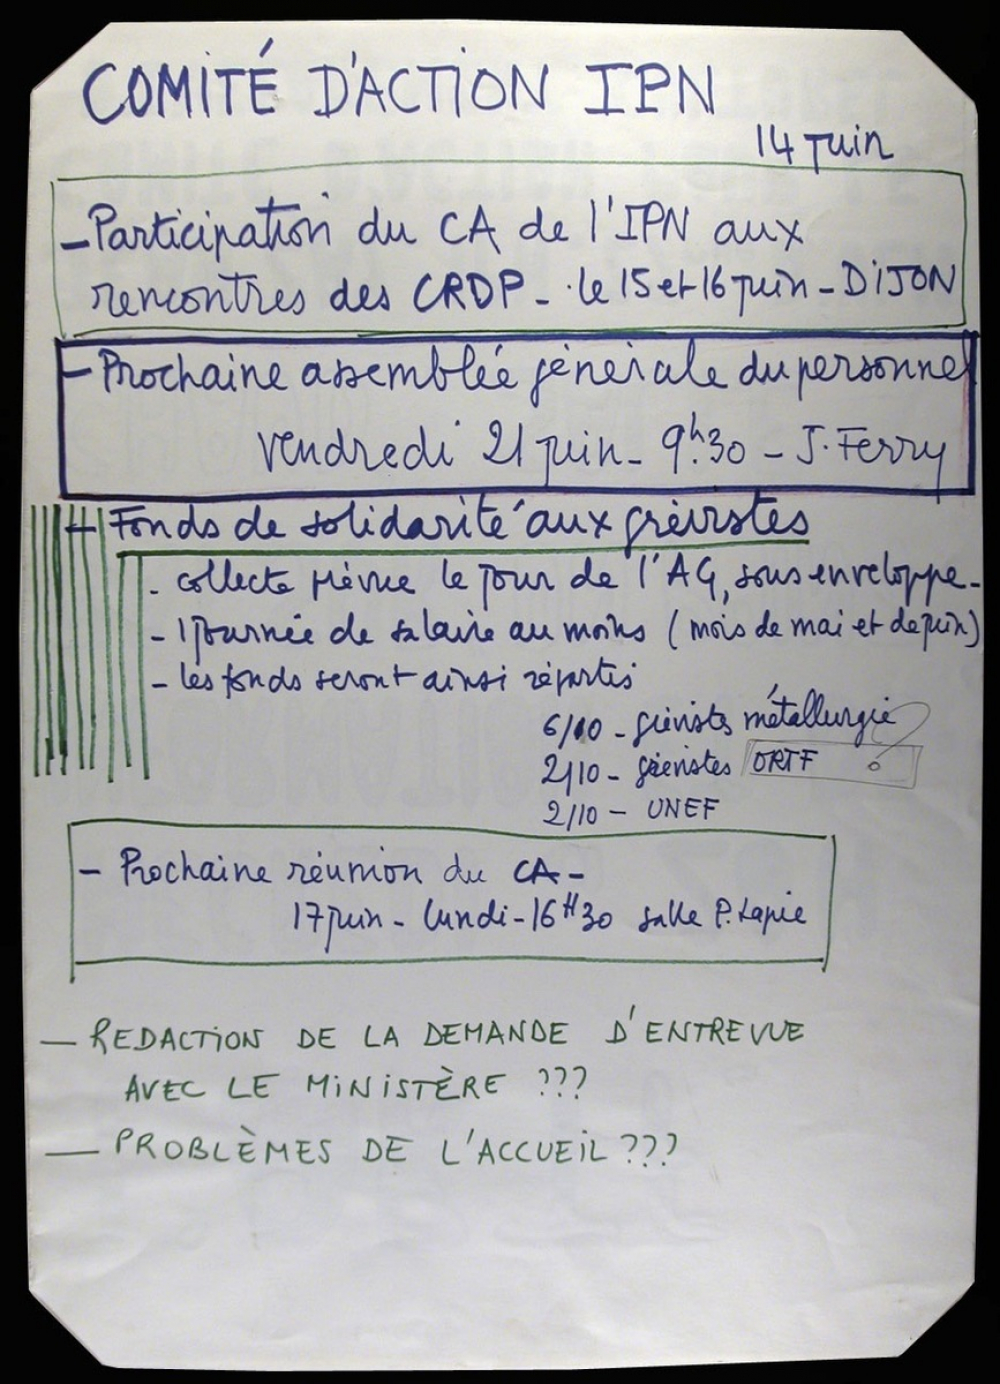 COMITÉ D'ACTION IPN
14 juin
- Participation du CA de l'IPN aux
rencontres des CRDP - le 15 et 16 juin - DIJON
- Prochaine assemblée générale du personnel
vendredi 21 juin - 9h30 - J. Ferry
- Fonds de solidarité aux grévistes
- collecte prévue le jour de l'AG, sous enveloppe -
- 1 journée de salaire au moins (mois de mai et de juin)
- les fonds seront ainsi répartis
6/10 - grévistes métallurgie
2/10 - grévistes ORTF ?
2/10 - UNEF
- Prochaine réunion du CA -
17 juin - lundi - 16H30 salle P. Lapie
- REDACTION DE LA DEMANDE D'ENTREVUE
AVEC LE MINISTÈRE ???
- PROBLÈMES DE L'ACCUEIL ???